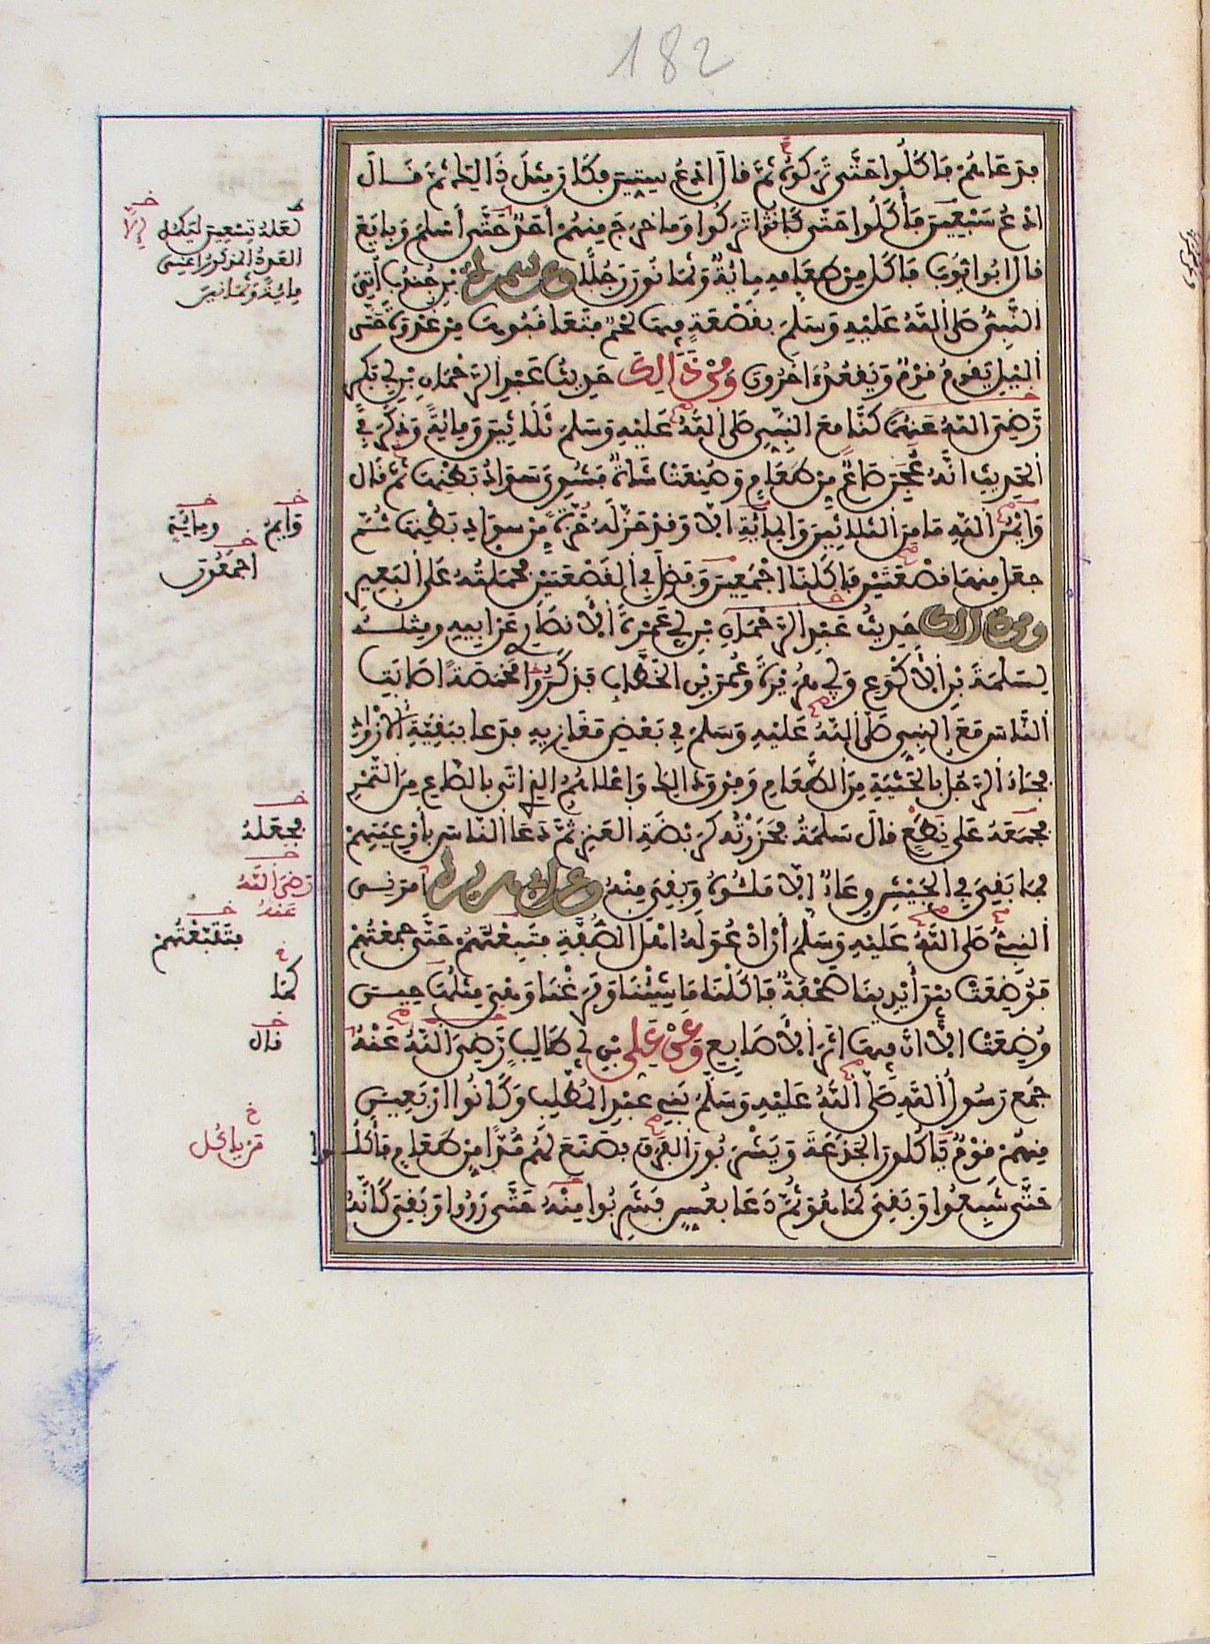 182
فدعاهم فاكلوا حتى تركوه ثم قال ادع ستين فكان مثل ذالك ثم قال
ادع سبعين فأكلوا حتى تركوا وما خرج منهم أحد حتى أسلم وبايع
قال ابو ايوب فاكل من طعامه مائة وثمانون رجلا وعن سمرة بن جندب أتي
النبي صلى الله عليه وسلم بقصعة فيها لحم فتعاقبوها من غدوة حتى
الليل يقوم قوم ويقعد اخرون ومن ذالك حديث عبد الرحمان بن أبي بكر
رضي الله عنهما كنا مع النبي صلى الله عليه وسلم ثلاثين ومائة وذكر في
الحديث انه عجن صاع من طعام وصنعت شاة فشوي سواد بطنها ثم قال
وايم الله ما من الثلاثين والمائة الا وقد حز له حزة من سواد بطنها ثم
جعل منها قصعتين فاكلنا اجمعين وفضل في القصعتين فحملته على البعير
ومن ذالك حديث عبد الرحمان بن أبي عمرة الأنصاري عن ابيه ومثله
لسلمة بن الأكوع وأبي هريرة وعمر بن الخطاب فذكروا مخمصة اصابت
الناس مع النبي صلى الله عليه وسلم في بعض مغازيه فدعا ببقية الأزواد
فجاء الرجل بالحثية من الطعام وفوق ذالك واعلاهم الذي اتى بالصاع من التمر
فجمعه على نطع قال سلمة فحزرته كربضة العنز ثم دعا الناس بأوعيتهم
فما بقي في الجيش وعاء الا ملئوه وبقي منه وعن أبي هريرة أمرني
النبي صلى الله عليه وسلم أن ادعو له اهل الصفة فتبعتهم حتى جمعتهم
فوضعت بين أيدينا صحفة فاكلنا ما شئنا وفرغنا وهي مثلها حين
وضعت الا ان فيها اثر الأصابع وعن علي بن أبي طالب رضي الله عنه
جمع رسول الله صلى الله عليه وسلم بني عبد المطلب وكانوا اربعين
منهم قوم يأكلون الجذعة ويشربون الفرق فصنع لهم مدا من طعام فأكلوا
حتى شبعوا وبقي كما هو ثم دعا بعس فشربوا منه حتى رووا وبقي كأنه
لعله تسعين ليكمل
العدد المذكور اعني
مائة وثمانين
وايم ومائة
اجمعون
فجعله
رضي الله
عنه
فتتبعتهم
كما
قال
من ياكل